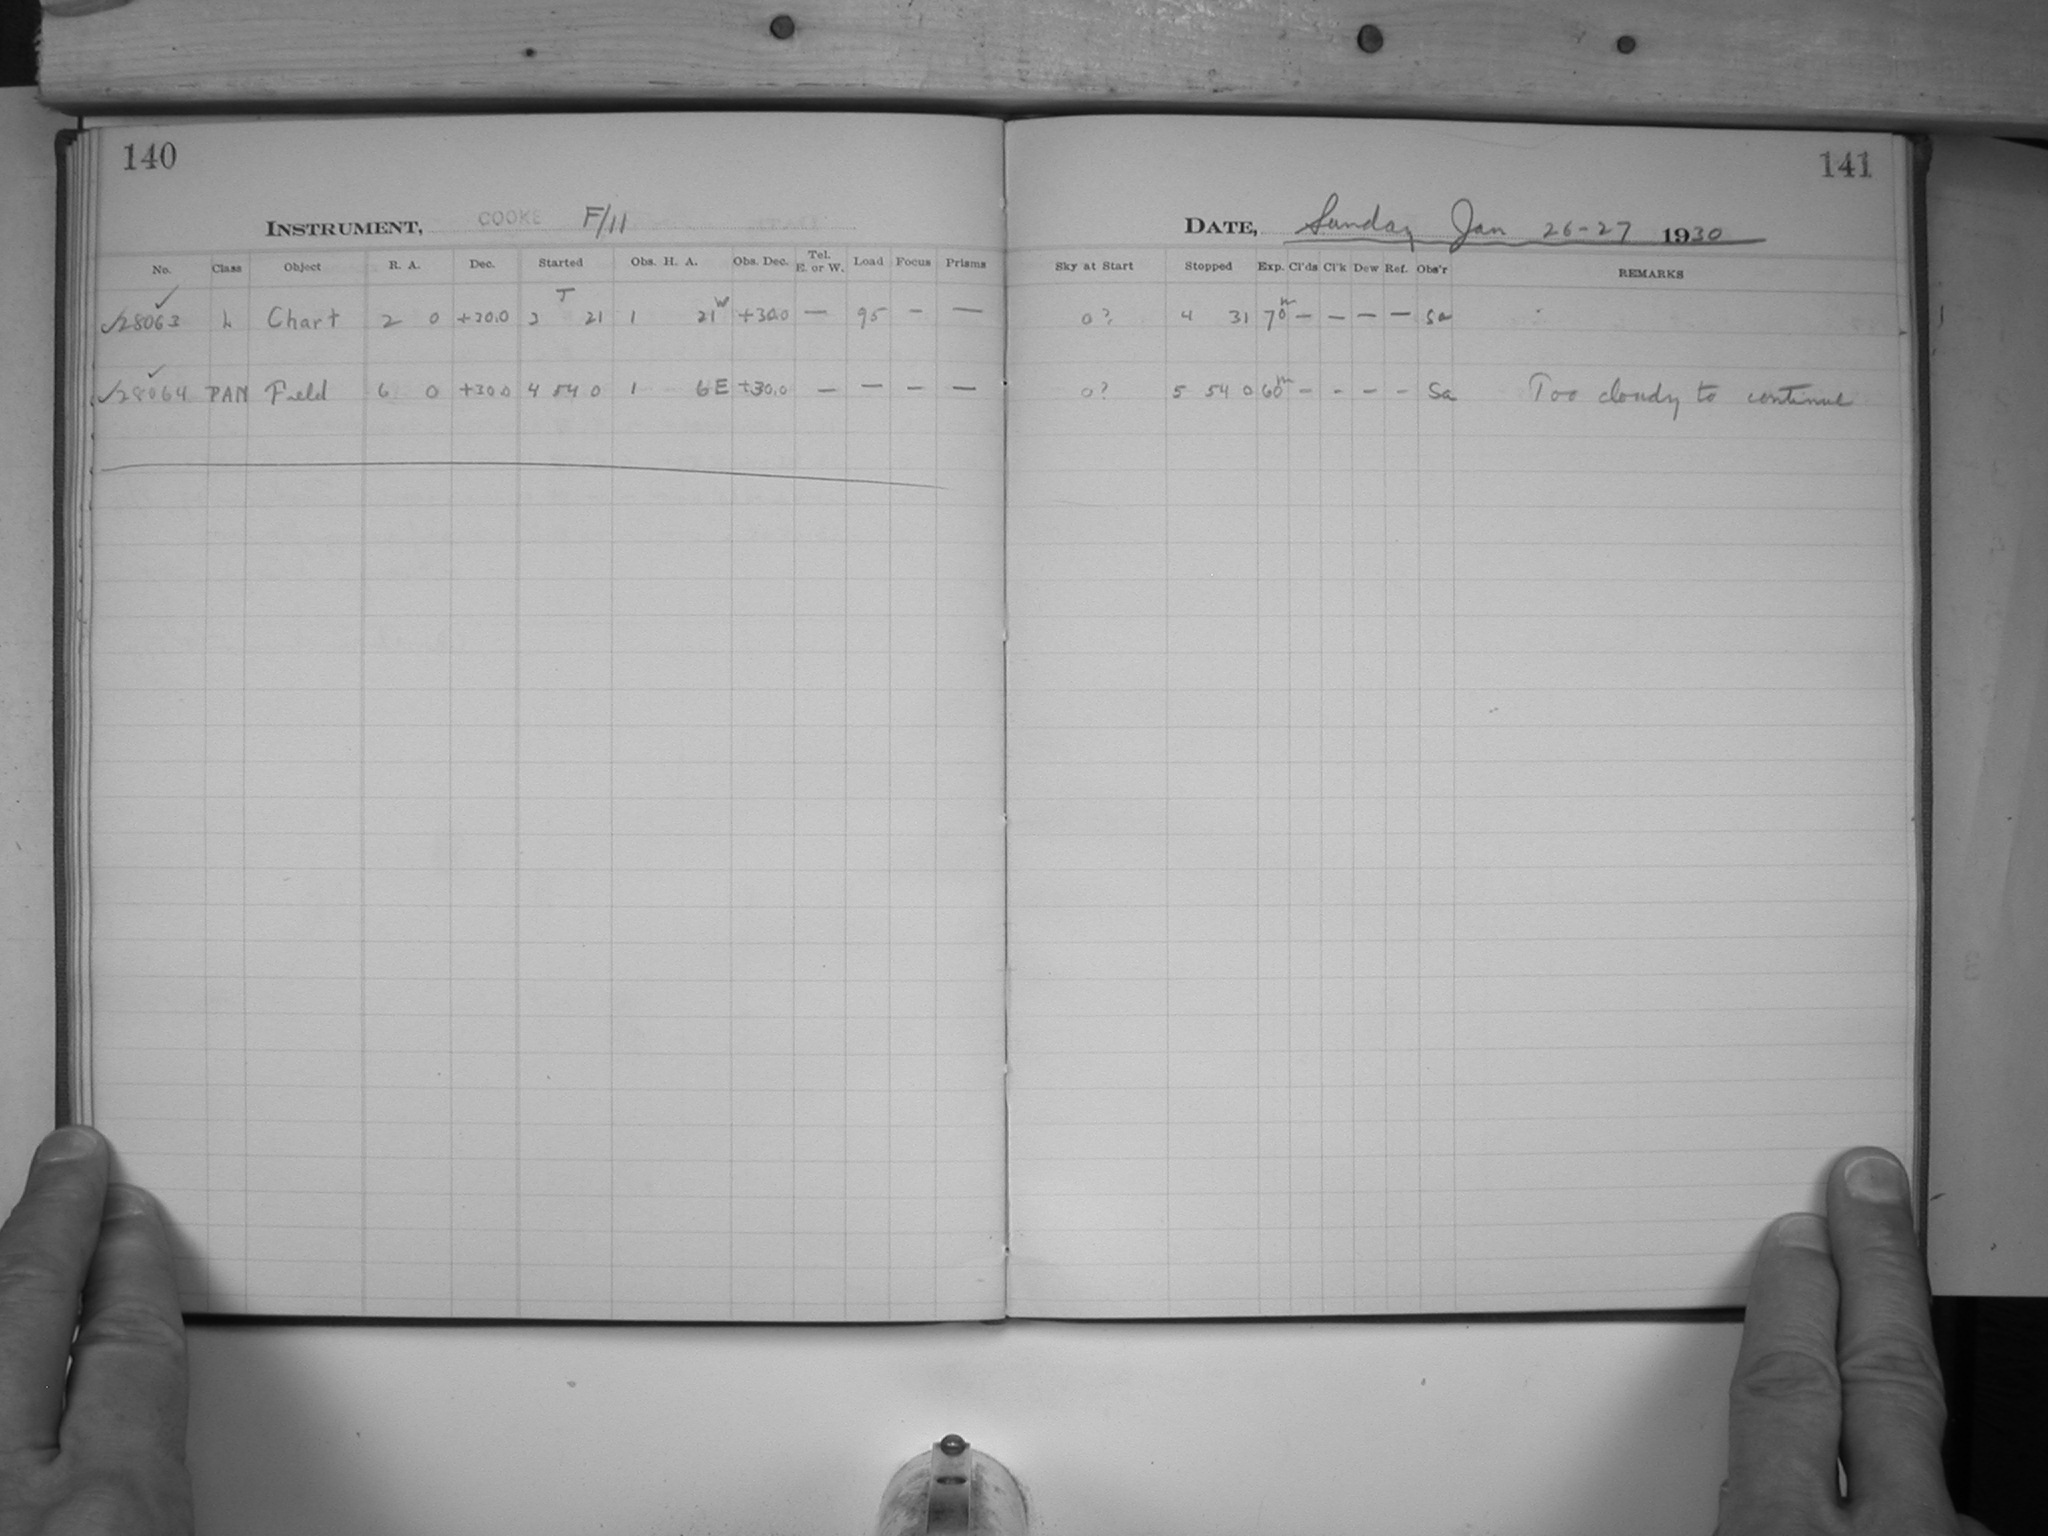 140
INSTRUMENT, COOKE F/11
No. Class Object R. A. Dec. Started Obs. H. A. Obs. Dec. Tel. E. or W. Load Focus Prisms
T
✓28063 ✓ L Chart 2 0 +30.0 3 21 1 21 W +30.0 — 95 – —
✓28064 ✓ PAN Field 6 0 +30.0 4 54 0 1 6 E +30.0 — — – —
141
DATE, Sunday Jan 26-27 1930
Sky at Start Stopped Exp. Cl'ds Cl'k Dew Ref. Obs'r REMARKS
0? 4 31 70m – – – – Sa
0? 5 54 0 60m – – – – Sa Too cloudy to continue